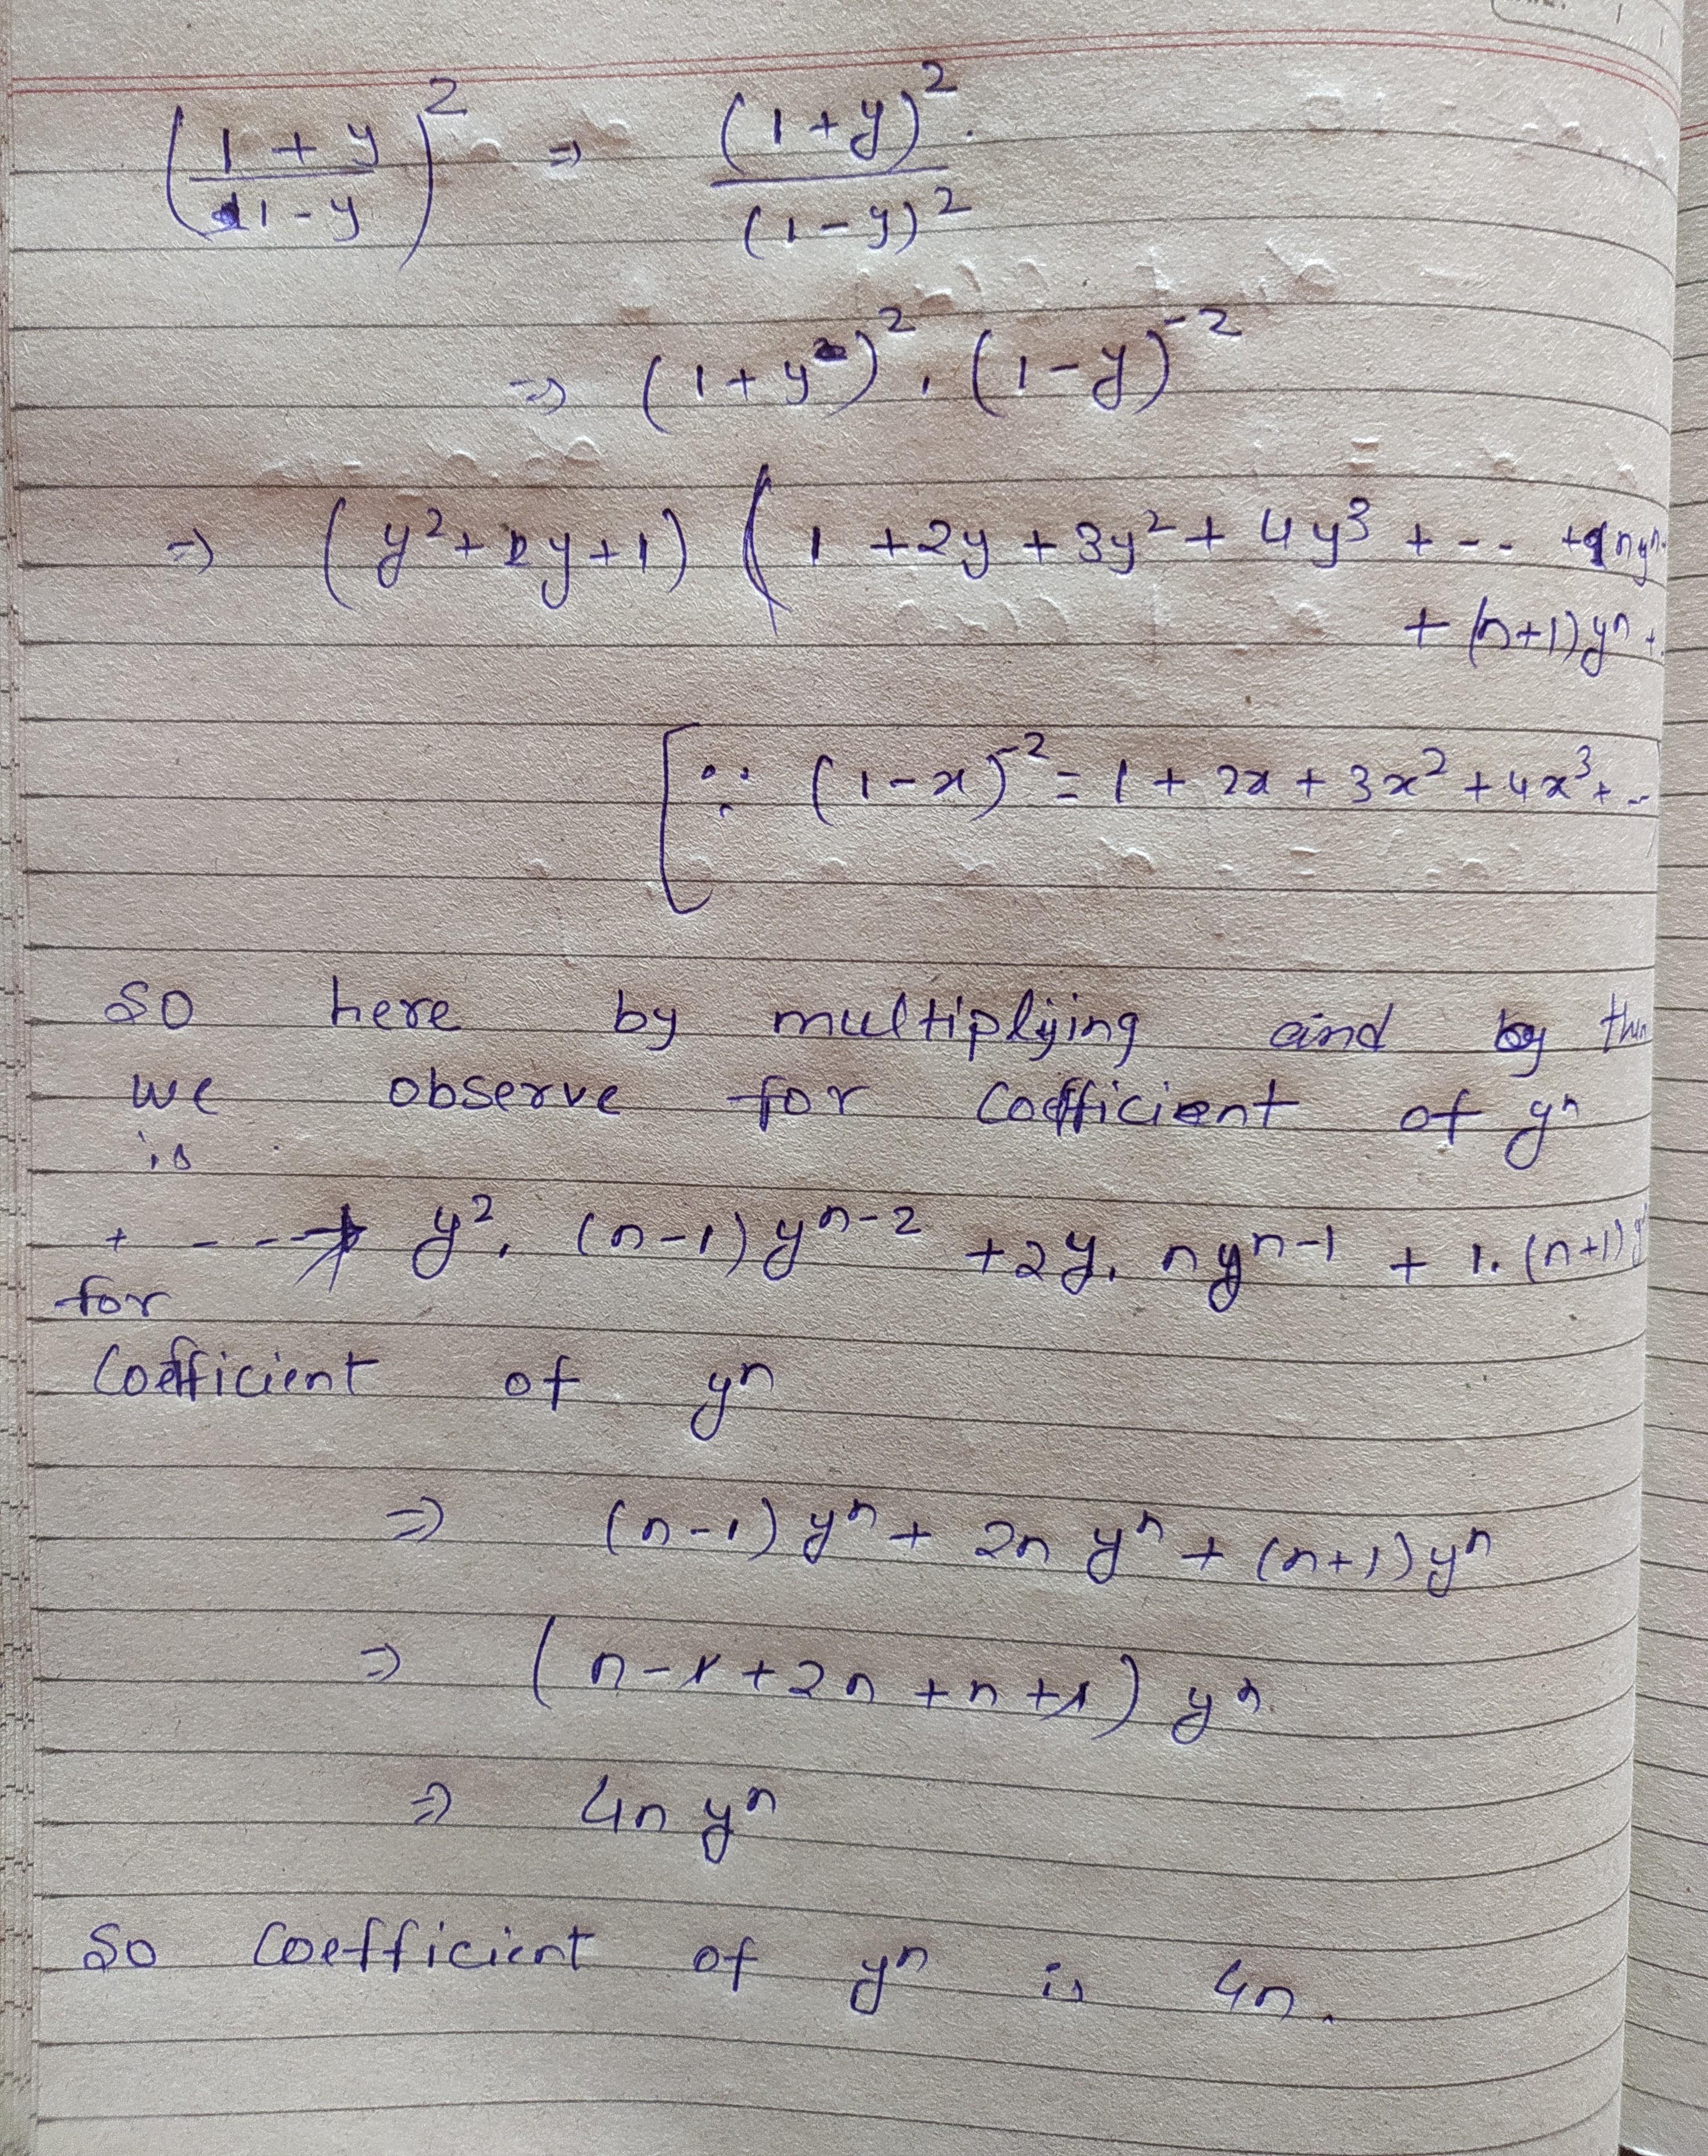 (1+y / 1-y)² ⇒ (1+y)² / (1-y)².
⇒ (1+y)² . (1-y)⁻²
⇒ (y²+2y+1) (1 +2y + 3y² + 4y³ + -- +nyⁿ
+ (n+1)yⁿ +
[∵ (1-x)⁻² = 1 + 2x + 3x² + 4x³ + --
so here by multiplying and by
we observe for coefficient of yⁿ
is
+ - - - y². (n-1)yⁿ⁻² +2y. nyⁿ⁻¹ + 1. (n+1)yⁿ
for
coefficient of yⁿ
⇒ (n-1)yⁿ + 2n yⁿ + (n+1)yⁿ
⇒ (n-1+2n+n+1) yⁿ
⇒ 4n yⁿ
So coefficient of yⁿ is 4n.